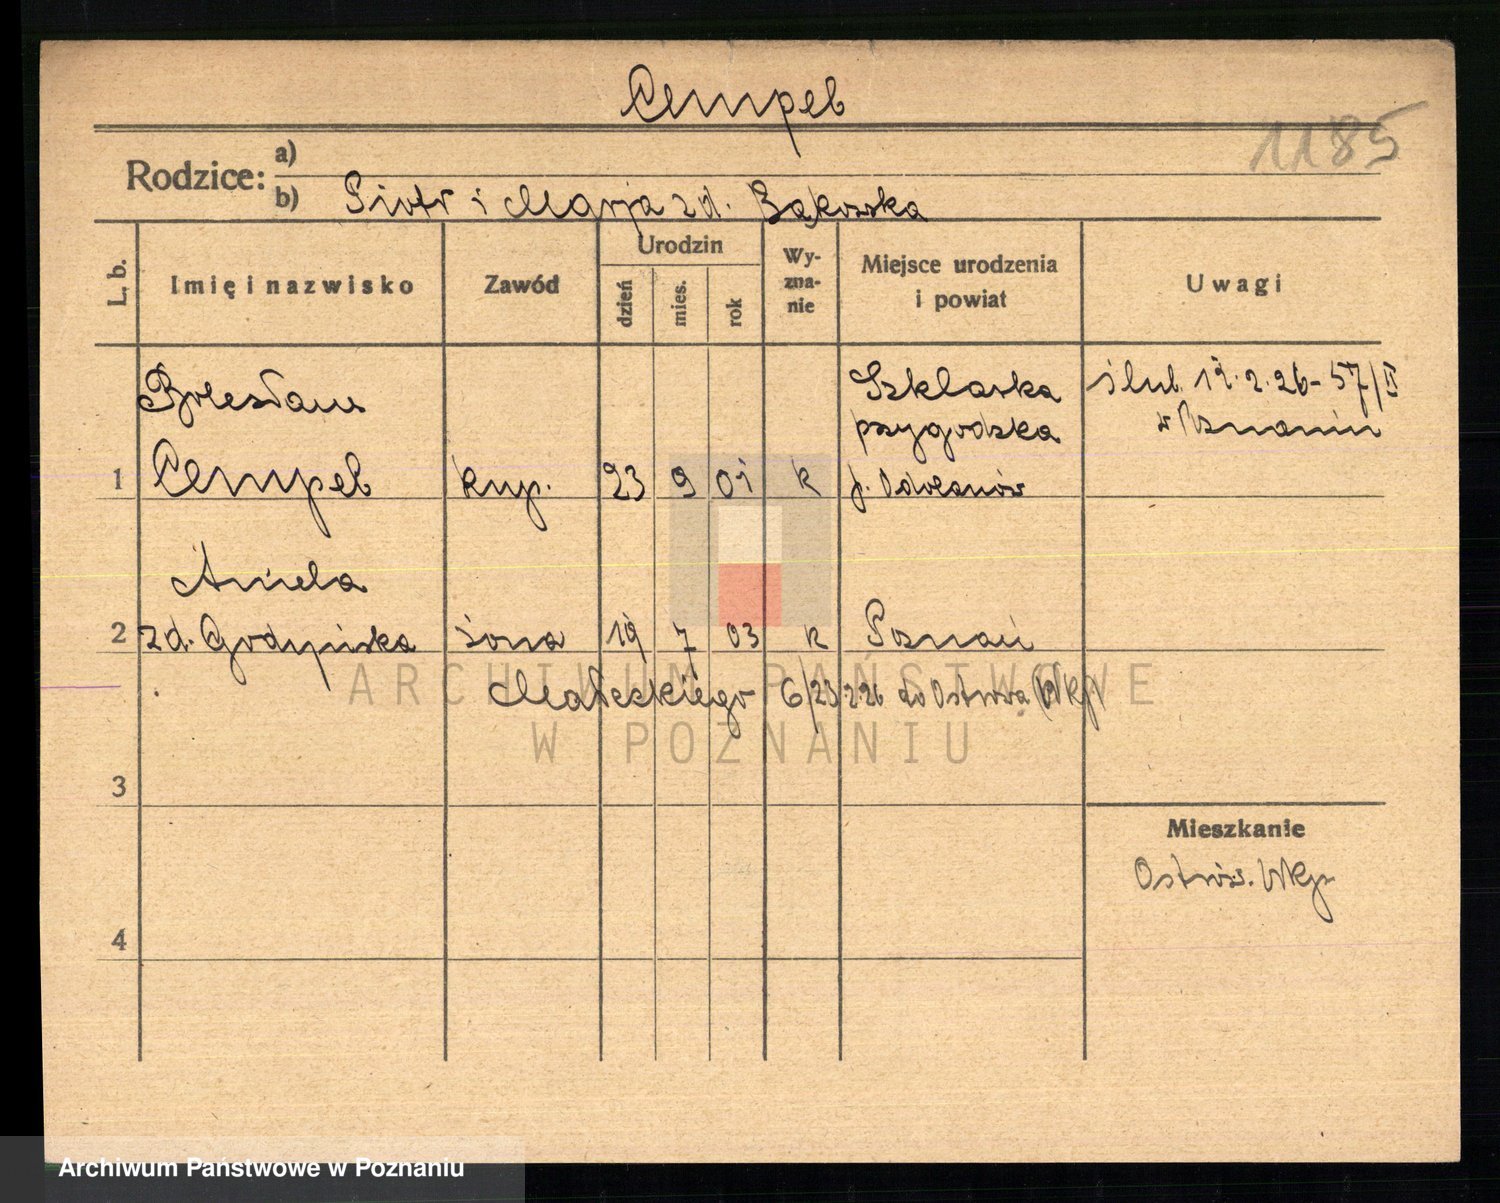 Cempel
1185
Rodzice: a)
b) Piotr i Marja zd. Bąkowska
L. b.
Imię i nazwisko
Zawód
Urodzin
dzień
mies.
rok
Wy-
zna-
nie
Miejsce urodzenia
i powiat
Uwagi
Bolesław Szklarka ślub 12.2.26 - 57/II
przygodzka w Poznaniu
1 Cempel kup. 23 9 01 k p. Odolanów
Aniela
2 zd. Godyńska żona 19 7 03 k Poznań
Małeckiego 6/23 2.26 do Ostrowa (Wkp)
3
Mieszkanie
Ostrów. Wkp.
4
ARCHIWUM PAŃSTWOWE
W POZNANIU
Archiwum Państwowe w Poznaniu